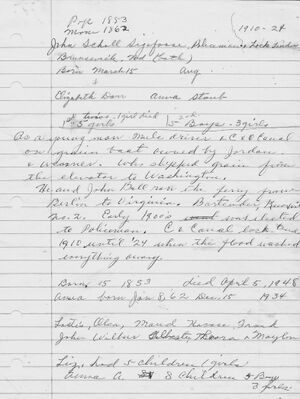 Pop 1853
Mom 1862 (1910-24
John Schell Policeman, Lock Tender
Brunswick, Md
Born March 15 Aug
Elizabeth Darr Anna Staub
1st twins - 1 girl died
5 girls 5 Boys - 3 girls
As a young man Mule driver C & O Canal
on grain boat owned by Jordan
& Wenner. Who shipped grain from
the elevator to Washington.
He and John Bell ran the ferry from
Berlin to Virginia. Bartender,
no. 2. Early 1900's was elected
to Policeman. C & O Canal lock tender
1910 until '24 when the flood washed
everything away.
Born 15 1853 died April 5, 1948
Anna born Jan 8, '62 Dec. 15 1934
Maud Frank
John Wilbur &
Liz. had 5 children / girls
Anna A. 8 Children 5 Boys
3 girls.